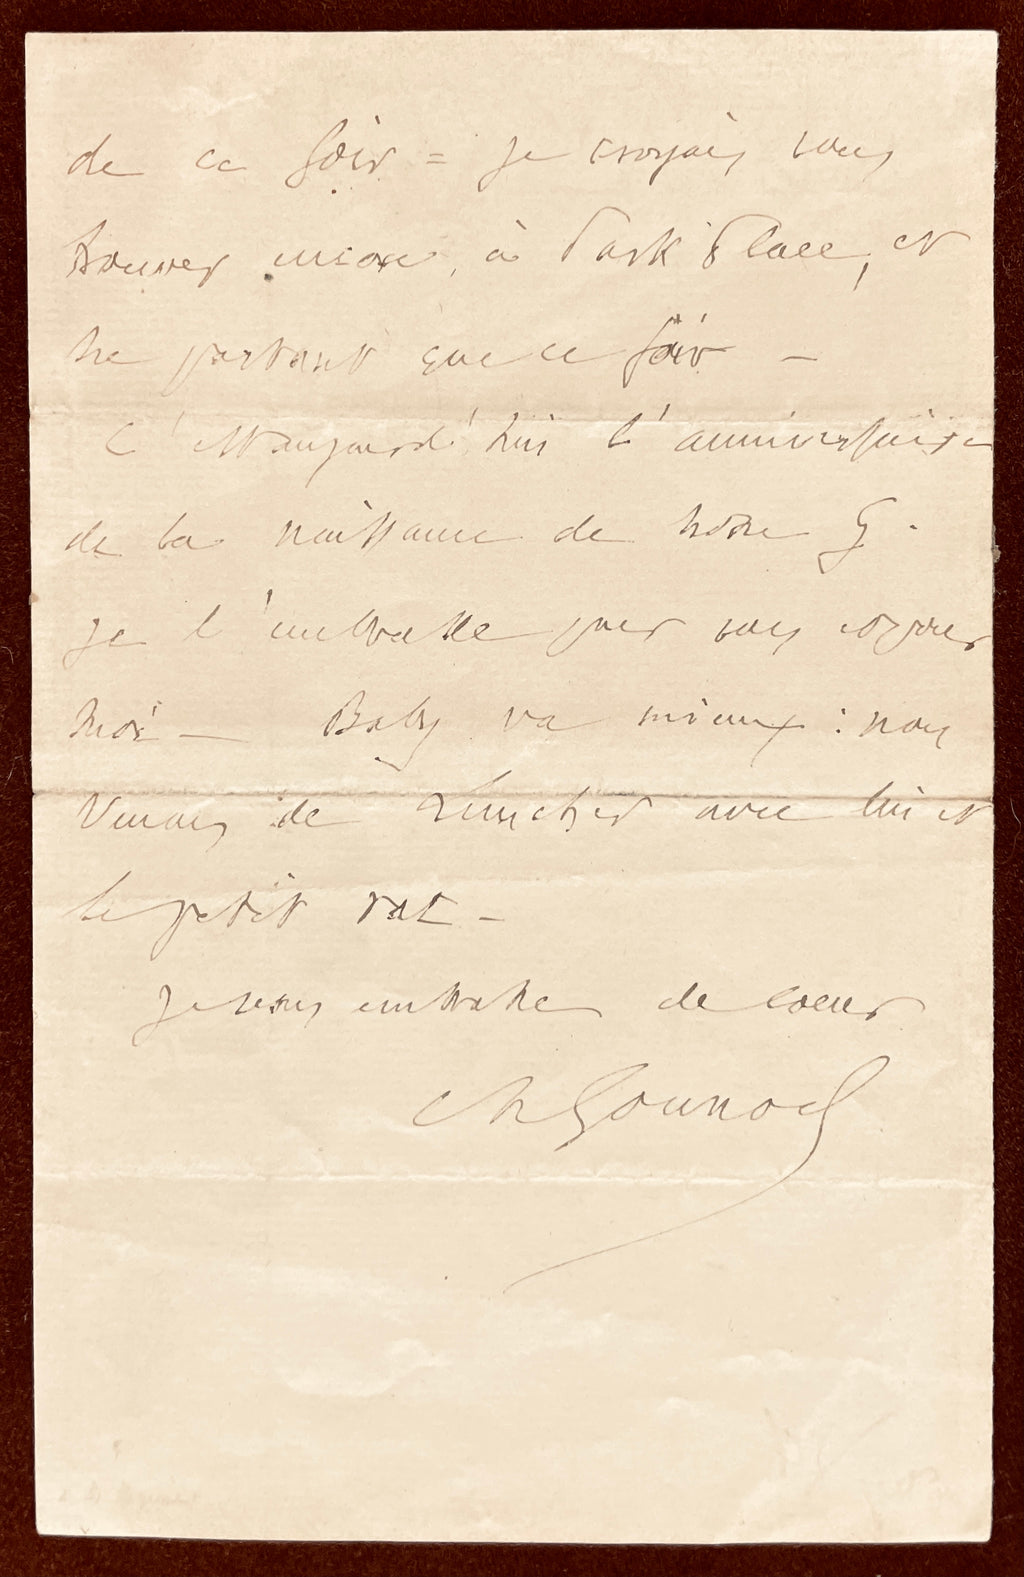 de ce soir = je croyais vous
trouver encore, à Park Place, et
ne partant que ce soir —
C'est aujourd'hui l'anniversaire
de la naissance de notre G.
je l'embrasse pour vous et pour
moi — Baby va mieux : nous
venons de luncher avec lui et
le petit rat —
je vous embrasse de coeur
Ch Gounod